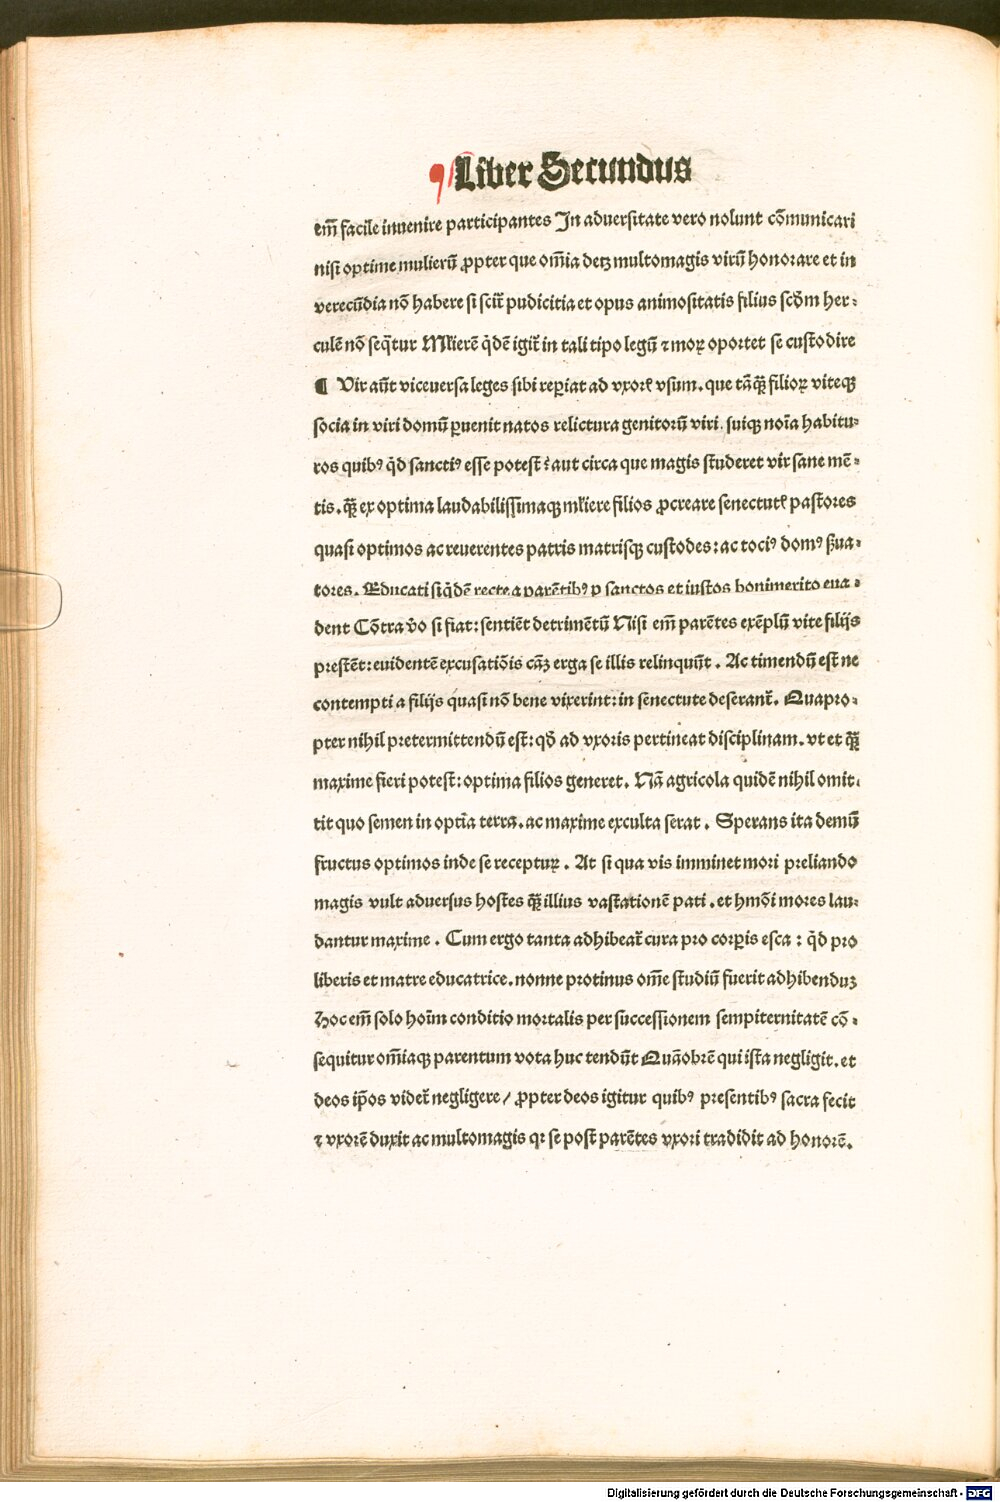 Liber Secundus
em̃ facile inuenire participantes In aduersitate vero nolunt cõmunicari
nisi optime mulierũ ꝓpter que om̃ia detꝫ multomagis virũ honorare et in
verecũdia nõ habere si scir̃ pudicitia et opus animositatis filius scd̃m her⸗
culẽ nõ seq̃tur Ml̃ierẽ q̃dẽ igit̃ in tali tipo legũ ⁊ moꝝ oportet se custodire
¶ Vir aũt viceuersa leges sibi reꝑiat ad vxorẽ vsum. que tãq̃ꝫ filioꝝ viteqꝫ
socia in viri domũ ꝑuenit natos relictura genitorũ viri. suiqꝫ noĩa habitu⸗
ros quibꝰ q̃d sanctiꝰ esse potest? aut circa que magis studeret vir sane mẽ⸗
tis. q̃ꝫ ex optima laudabilissimaqꝫ ml̃iere filios ꝓcreare senectutẽ pastores
quasi optimos ac reuerentes patris matrisqꝫ custodes: ac tociꝰ domꝰ ẜua⸗
tores. Educati siq̃dẽ recte a parẽtibꝰ ꝑ sanctos et iustos bonimerito eua⸗
dent Cõtra v̊o si fiat: sentiẽt detrimẽtũ Nisi em̃ parẽtes exẽplũ vite filijs
prestẽt: euidentẽ excusatiõis cãꝫ erga se illis relinquũt. Ac timendũ est ne
contempti a filijs quasi nõ bene vixerint: in senectute deserant̃. Quapro⸗
pter nihil pretermittendũ est: qd̃ ad vxoris pertineat disciplinam. vt et q̃ꝫ
maxime fieri potest: optima filios generet. Nã agricola quidẽ nihil omit⸗
tit quo semen in optĩa terra. ac maxime exculta serat. Sperans ita demũ
fructus optimos inde se recepturꝝ. At si qua vis imminet mori preliando
magis vult aduersus hostes q̃ꝫ illius vastationẽ pati. et hmõi mores lau⸗
dantur maxime. Cum ergo tanta adhibeat̃ cura pro corꝑis esca: q̃d pro
liberis et matre educatrice. nonne protinus om̃e studiũ fuerit adhibenduꝫ
Hoc em̃ solo hoĩm conditio mortalis per successionem sempiternitatẽ cõ⸗
sequitur om̃iaqꝫ parentum vota huc tendũt Quãobrẽ qui ista negligit. et
deos ip̃os videt̃ negligere / ꝓpter deos igitur quibꝰ presentibꝰ sacra fecit
⁊ vxorẽ duxit ac multomagis qꝛ se post parẽtes vxori tradidit ad honorẽ.
Digitalisierung gefördert durch die Deutsche Forschungsgemeinschaft - DFG